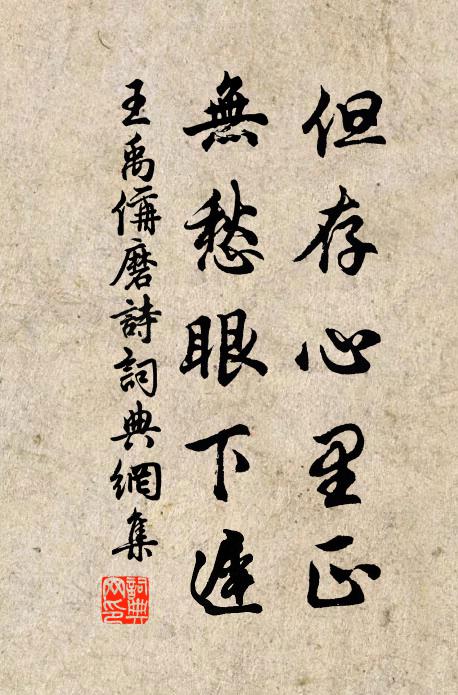 但存心里正
無愁眼下遲
王禹偁磨詩詞典網集
詞典